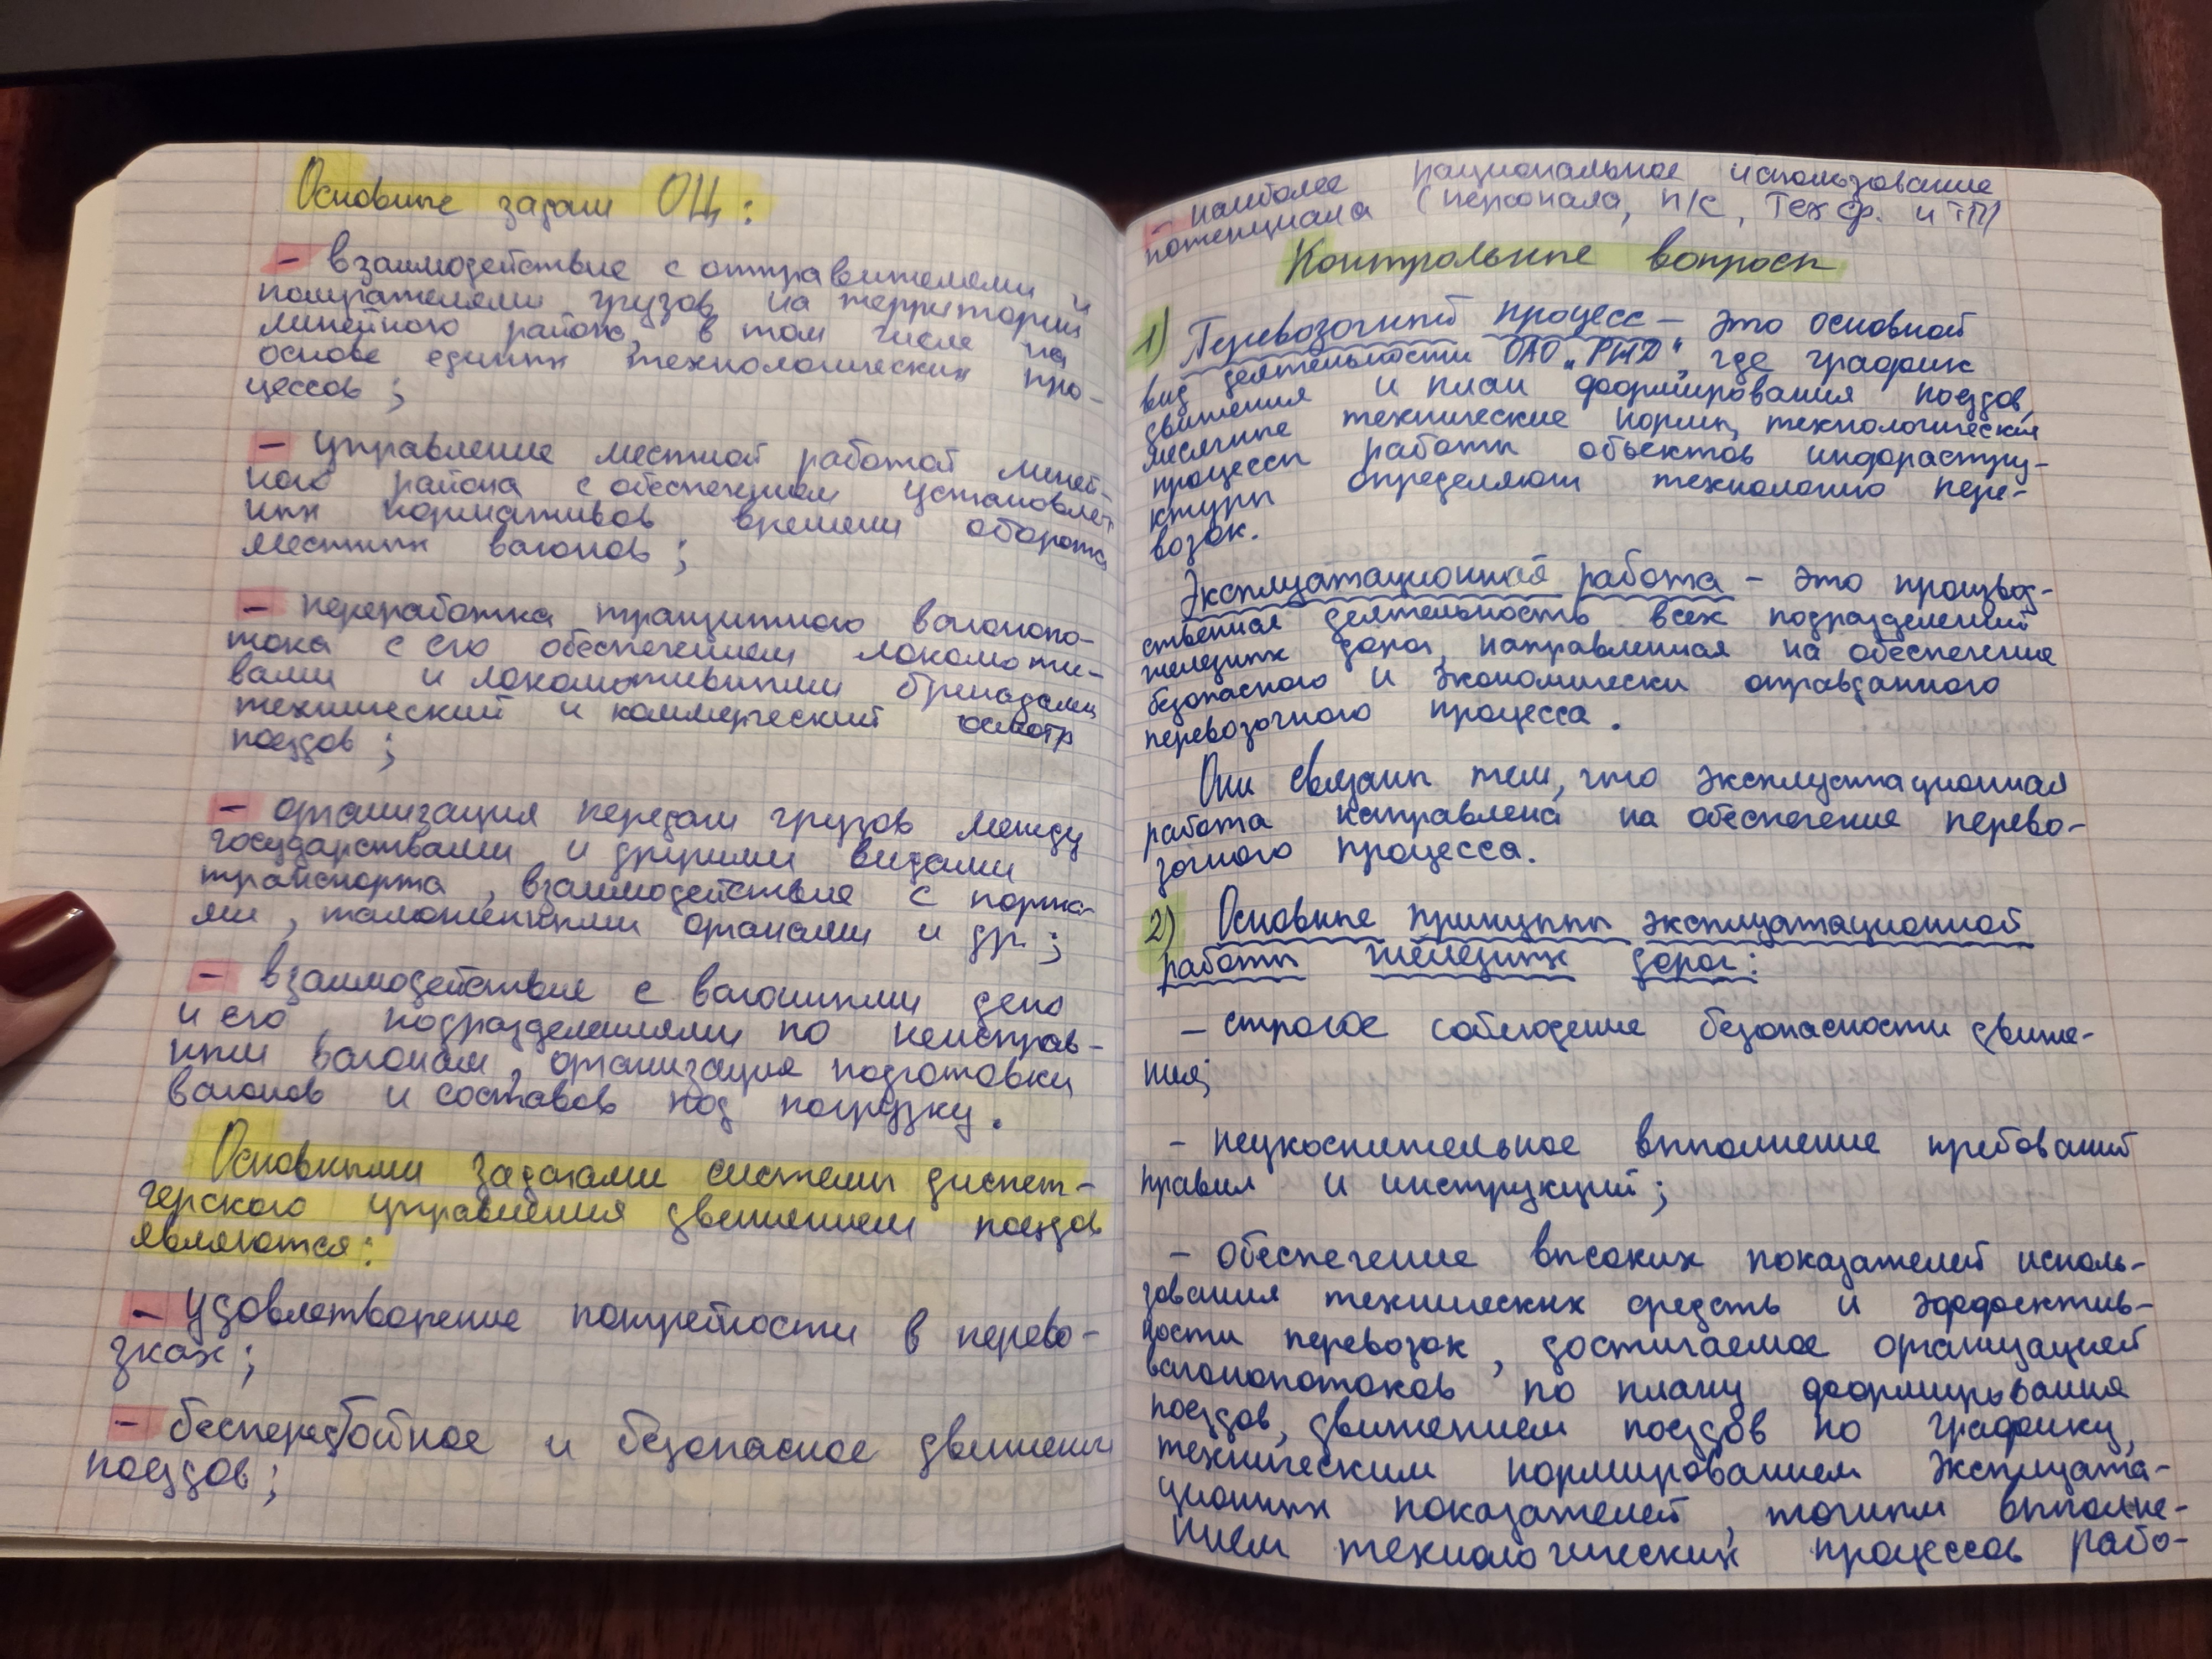 Основные задачи ОЦ:
- взаимодействие с отправителями и
получателями грузов на территории
линейного района, в том числе на
основе единых технологических про-
цессов;
- управление местной работой линей-
ного района с обеспечением установлен
ных нормативов времени оборота
местных вагонов;
- переработка транзитного вагонопо-
тока с его обеспечением локомоти-
вами и локомотивными бригадами
технический и коммерческий осмотр
поездов;
- организация передачи грузов между
государствами и другими видами
транспорта, взаимодействие с порта-
ми, таможенными органами и др.;
- взаимодействие с вагонными депо
и его подразделениями по неисправ-
ным вагонам, организация подготовки
вагонов и составов под погрузку.
Основными задачами системы диспет-
черского управления движением поездов
являются:
- удовлетворение потребности в перево-
зках;
- бесперебойное и безопасное движение
поездов;
- наиболее рациональное использование
потенциала (персонала, п/с, Тех ср. и ТП)
Контрольные вопросы
1) Перевозочный процесс - это основной
вид деятельности ОАО „РЖД", где график
движения и план формирования поездов,
месячные технические нормы, технологические
процессы работы объектов инфраструк-
ктуры определяют технологию пере-
возок.
Эксплуатационная работа - это производ-
ственная деятельность всех подразделений
железных дорог, направленная на обеспечение
безопасного и экономически оправданного
перевозочного процесса.
Они связаны тем, что эксплуатационная
работа направлена на обеспечение перево-
зочного процесса.
2) Основные принципы эксплуатационной
работы железных дорог:
- строгое соблюдение безопасности движе-
ния;
- неукоснительное выполнение требований
правил и инструкций;
- обеспечение высоких показателей исполь-
зования технических средств и эффектив-
ности перевозок, достигаемое организацией
вагонопотоков по плану формирования
поездов, движением поездов по графику,
техническим нормированием эксплуата-
ционных показателей, точным выполне-
нием технологических процессов рабо-